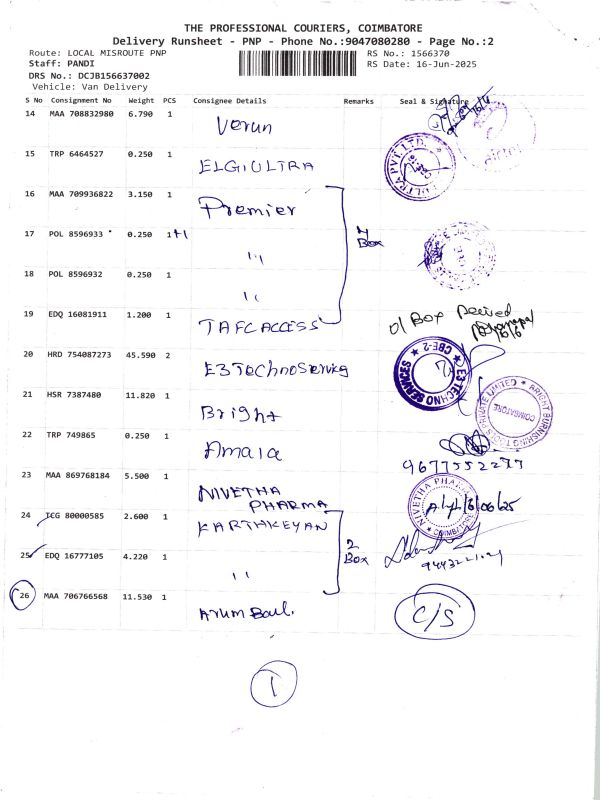 THE PROFESSIONAL COURIERS, COIMBATORE
Delivery Runsheet - PNP - Phone No.:9047080280 - Page No.:2
Route: LOCAL MISROUTE PNP RS No.: 1566370
Staff: PANDI RS Date: 16-Jun-2025
DRS No.: DCJB156637002
Vehicle: Van Delivery
S No Consignment No Weight PCS Consignee Details Remarks Seal & Signature
14 MAA 708832980 6.790 1 Verun
15 TRP 6464527 0.250 1 ELGIULTRA
16 MAA 709936822 3.150 1 Premier
17 POL 8596933 0.250 1+1 ,,
4 Box
18 POL 8596932 0.250 1 ,,
19 EDQ 16081911 1.200 1 TAFCACCESS
01 Box
20 HRD 754087273 45.590 2 E3Technoservices
E3 TECHNO SERVICES CBE-2
21 HSR 7387480 11.820 1 Bright
BRIGHT BURNISHING TOOLS PRIVATE LIMITED COIMBATORE
22 TRP 749865 0.250 1 Amala
9677552277
23 MAA 869768184 5.500 1 NIVETHA PHARMA
NIVETHA PHARMA COIMBATORE
24 TCG 80000585 2.600 1 KARTHKEYAN
2 Box
25 EDQ 16777105 4.220 1 ,,
26 MAA 706766568 11.530 1 Arum Baul.
C/S
1